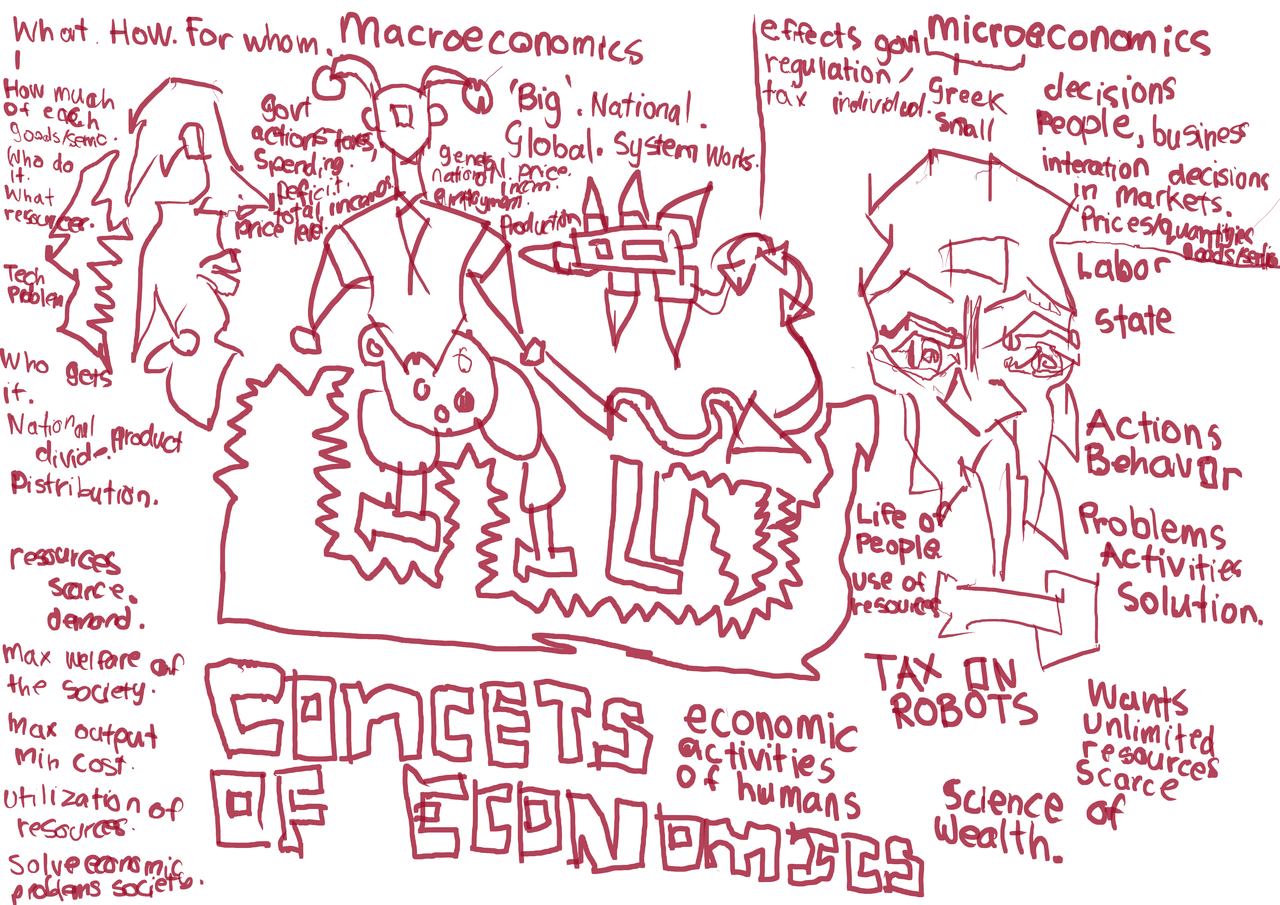 What. How. For whom.
How much
of each
goods/servc.
Who do
it.
What
resources.
Tech
Problem
Who gets
it.
National Product
divid-
Distribution.
resources
scarce.
demand.
Max welfare of
the society.
Max output
Min cost.
utilization of
resources.
Solve economic
problems society.
Macroeconomics
govt
actions taxes,
Spending.
Deficit.
total income
price level.
'Big'. National.
Global. System Works.
genera
national N. price.
incm.
employment.
Production
effects govt
regulation,
tax individual.
Microeconomics
Greek
small
decisions
People, business
interation decisions
in markets.
Prices/quantities
goods/servic
Labor
State
Actions
Behavor
Life of
People
use of
resources
Problems
Activities
Solution.
TAX ON
ROBOTS
CONCETS
OF ECONOMICS
economic
activities
of humans
Science of
Wealth.
Wants
unlimited
resources
Scarce